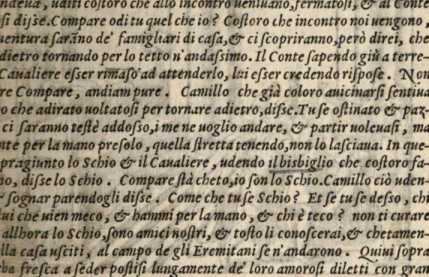 ndeua, uditi costoro che allo incontro ueniuano, fermatosi, & al Conte
si disse. Compare odi tu quel che io? Costoro che incontro noi uengono,
uentura sarãno de' famigliari di casa, & ci scopriranno, però direi, che
dietro tornando per lo tetto n'andassimo. Il Conte sapendo giù a terre-
Caualiere esser rimaso ad attenderlo, lui esser credendo rispose. Non
re Compare, andiam pure. Camillo che già coloro auicinarsi sentiua
o che adirato uoltatosi per tornare adietro, disse. Tu se ostinato & paz-
ci saranno testè addosso, i me ne uoglio andare, & partir uoleuasi, ma
nte per la mano preso lo, quella stretta tenendo, non lo lasciaua. In que-
pragiunto lo Schio & il Caualiere, udendo il bisbiglio che costoro fa-
no, disse lo Schio. Compare stà cheto, io son lo Schio. Camillo ciò uden-
sognar parendogli disse. Come che tu se Schio? Et se tu se desso, chi
lui che uien meco, & hammi per la mano, & chi è teco? non ti curare
allhora lo Schio, sono amici nostri, & tosto li conoscerai, & chetamen-
lla casa usciti, al campo de gli Eremitani se n'andarono. Quiui sopra
ba fresca a seder postisi lungamente de' loro amorosi diletti con gran